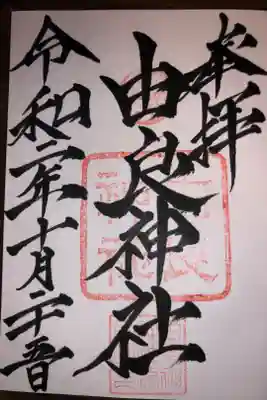 奉拝
由良神社
令和二年十月二十五日